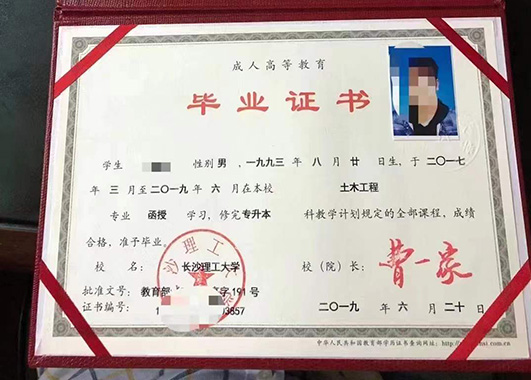 成人高等教育
毕业证书
学生 性别 男，一九九三年 八 月 廿 日生，于 二〇一七
年 三 月至 二〇一九 年 六 月在本校 土木工程
专业 函授 学习，修完 专升本 科教学计划规定的全部课程，成绩
合格，准予毕业。
校 名： 长沙理工大学 校（院）长： 曹一家
批准文号： 教育部 字 191 号
证书编号： 1 03857 二〇一九 年 六 月 二十 日
中华人民共和国教育部学历证书查询网址：